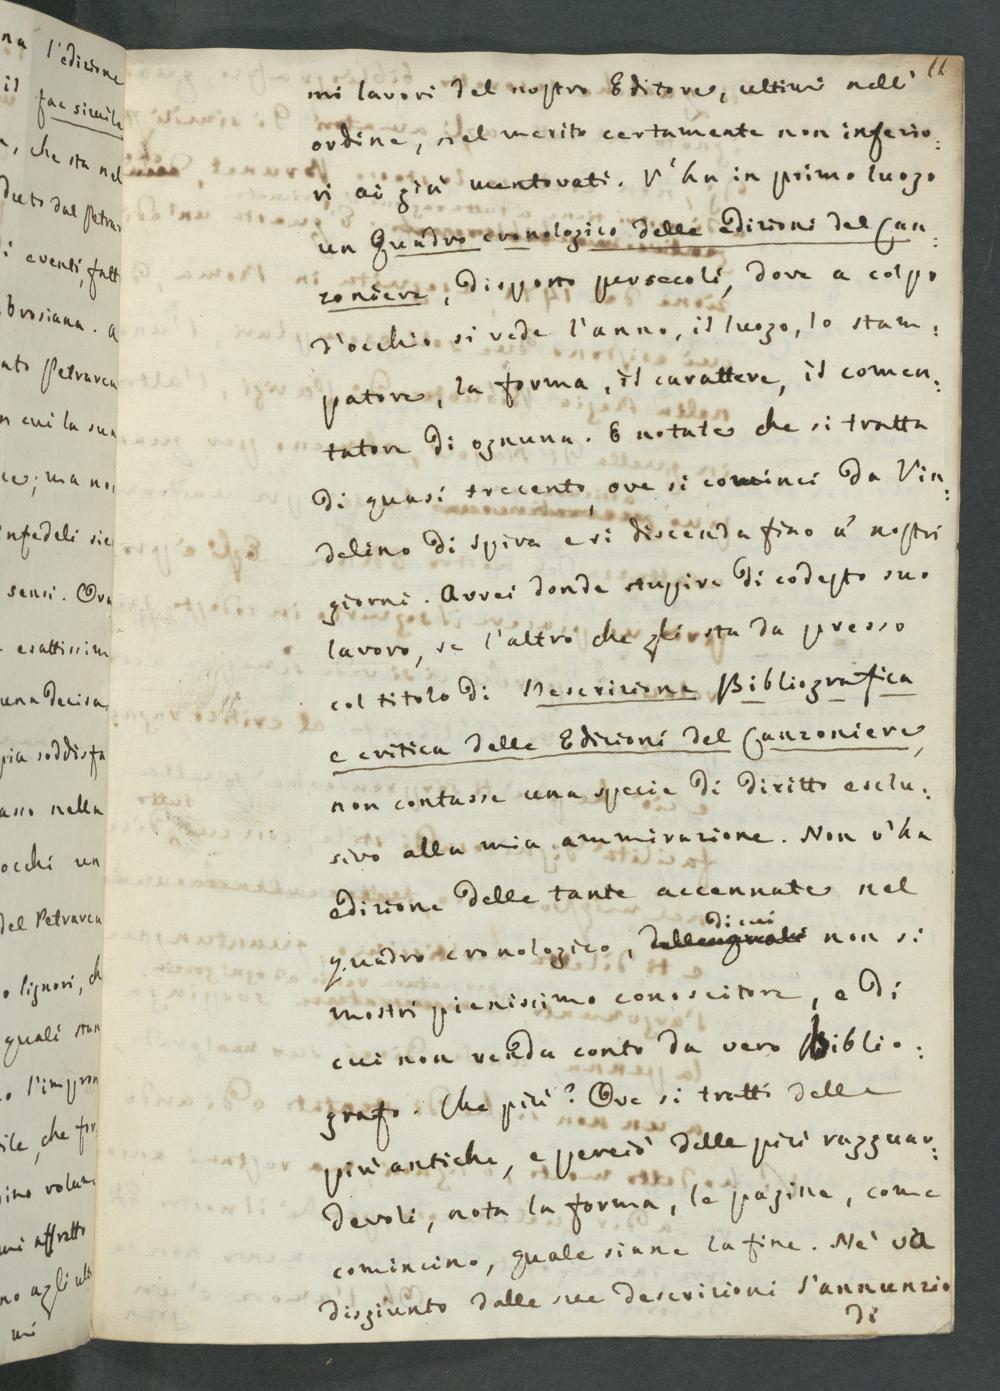 na l'edizione
il fac simile
, che sta nel
duto dal Petrar
i eventi, fatt
brosiana. a
ato Petrarca
n cui la sua
; ma no
nfedeli sie
sensi. Ora
esattissim
una decisa
pia soddisfa
asso nella
occhi un
del Petrarca
o lignori, ch
quali stan
o l'impron
ile, che for
imo volum
mi affretto
no agli ulti
mi
11
mi lavori del nostro Editore, ultimi nell'
ordine, nel merito certamente non inferio:
ri ai già mentovati. V'ha in primo luogo
un Quadro cronologico delle edizioni del Can:
zoniere, disposto per secoli, dove a colpo
d'occhio si vede l'anno, il luogo, lo stam:
patore, la forma, il carattere, il comen:
tatore di ognuna. E notate che si tratta
di quasi trecento, ove si cominci da Vin:
delino di Spira e si discenda fino a' nostri
giorni. Avrei donde stupire di codesto suo
lavoro, se l'altro che gli sta da presso
col titolo di Descrizione Bibliografica
e critica delle Edizioni del Canzoniere,
non contasse una specie di diritto esclu:
sivo alla mia ammirazione. Non v'ha
edizione delle tante accennate nel
di cui
quadro cronologico, delle quali non si
mostri pienissimo conoscitore, e di
cui non renda conto da vero Biblio:
grafo. Che più? Ove si tratti delle
più antiche, e perciò delle più ragguar:
devoli, nota la forma, le pagine, come
comincino, quale siane la fine. Nè va
disgiunto dalle sue descrizioni l'annunzio
di